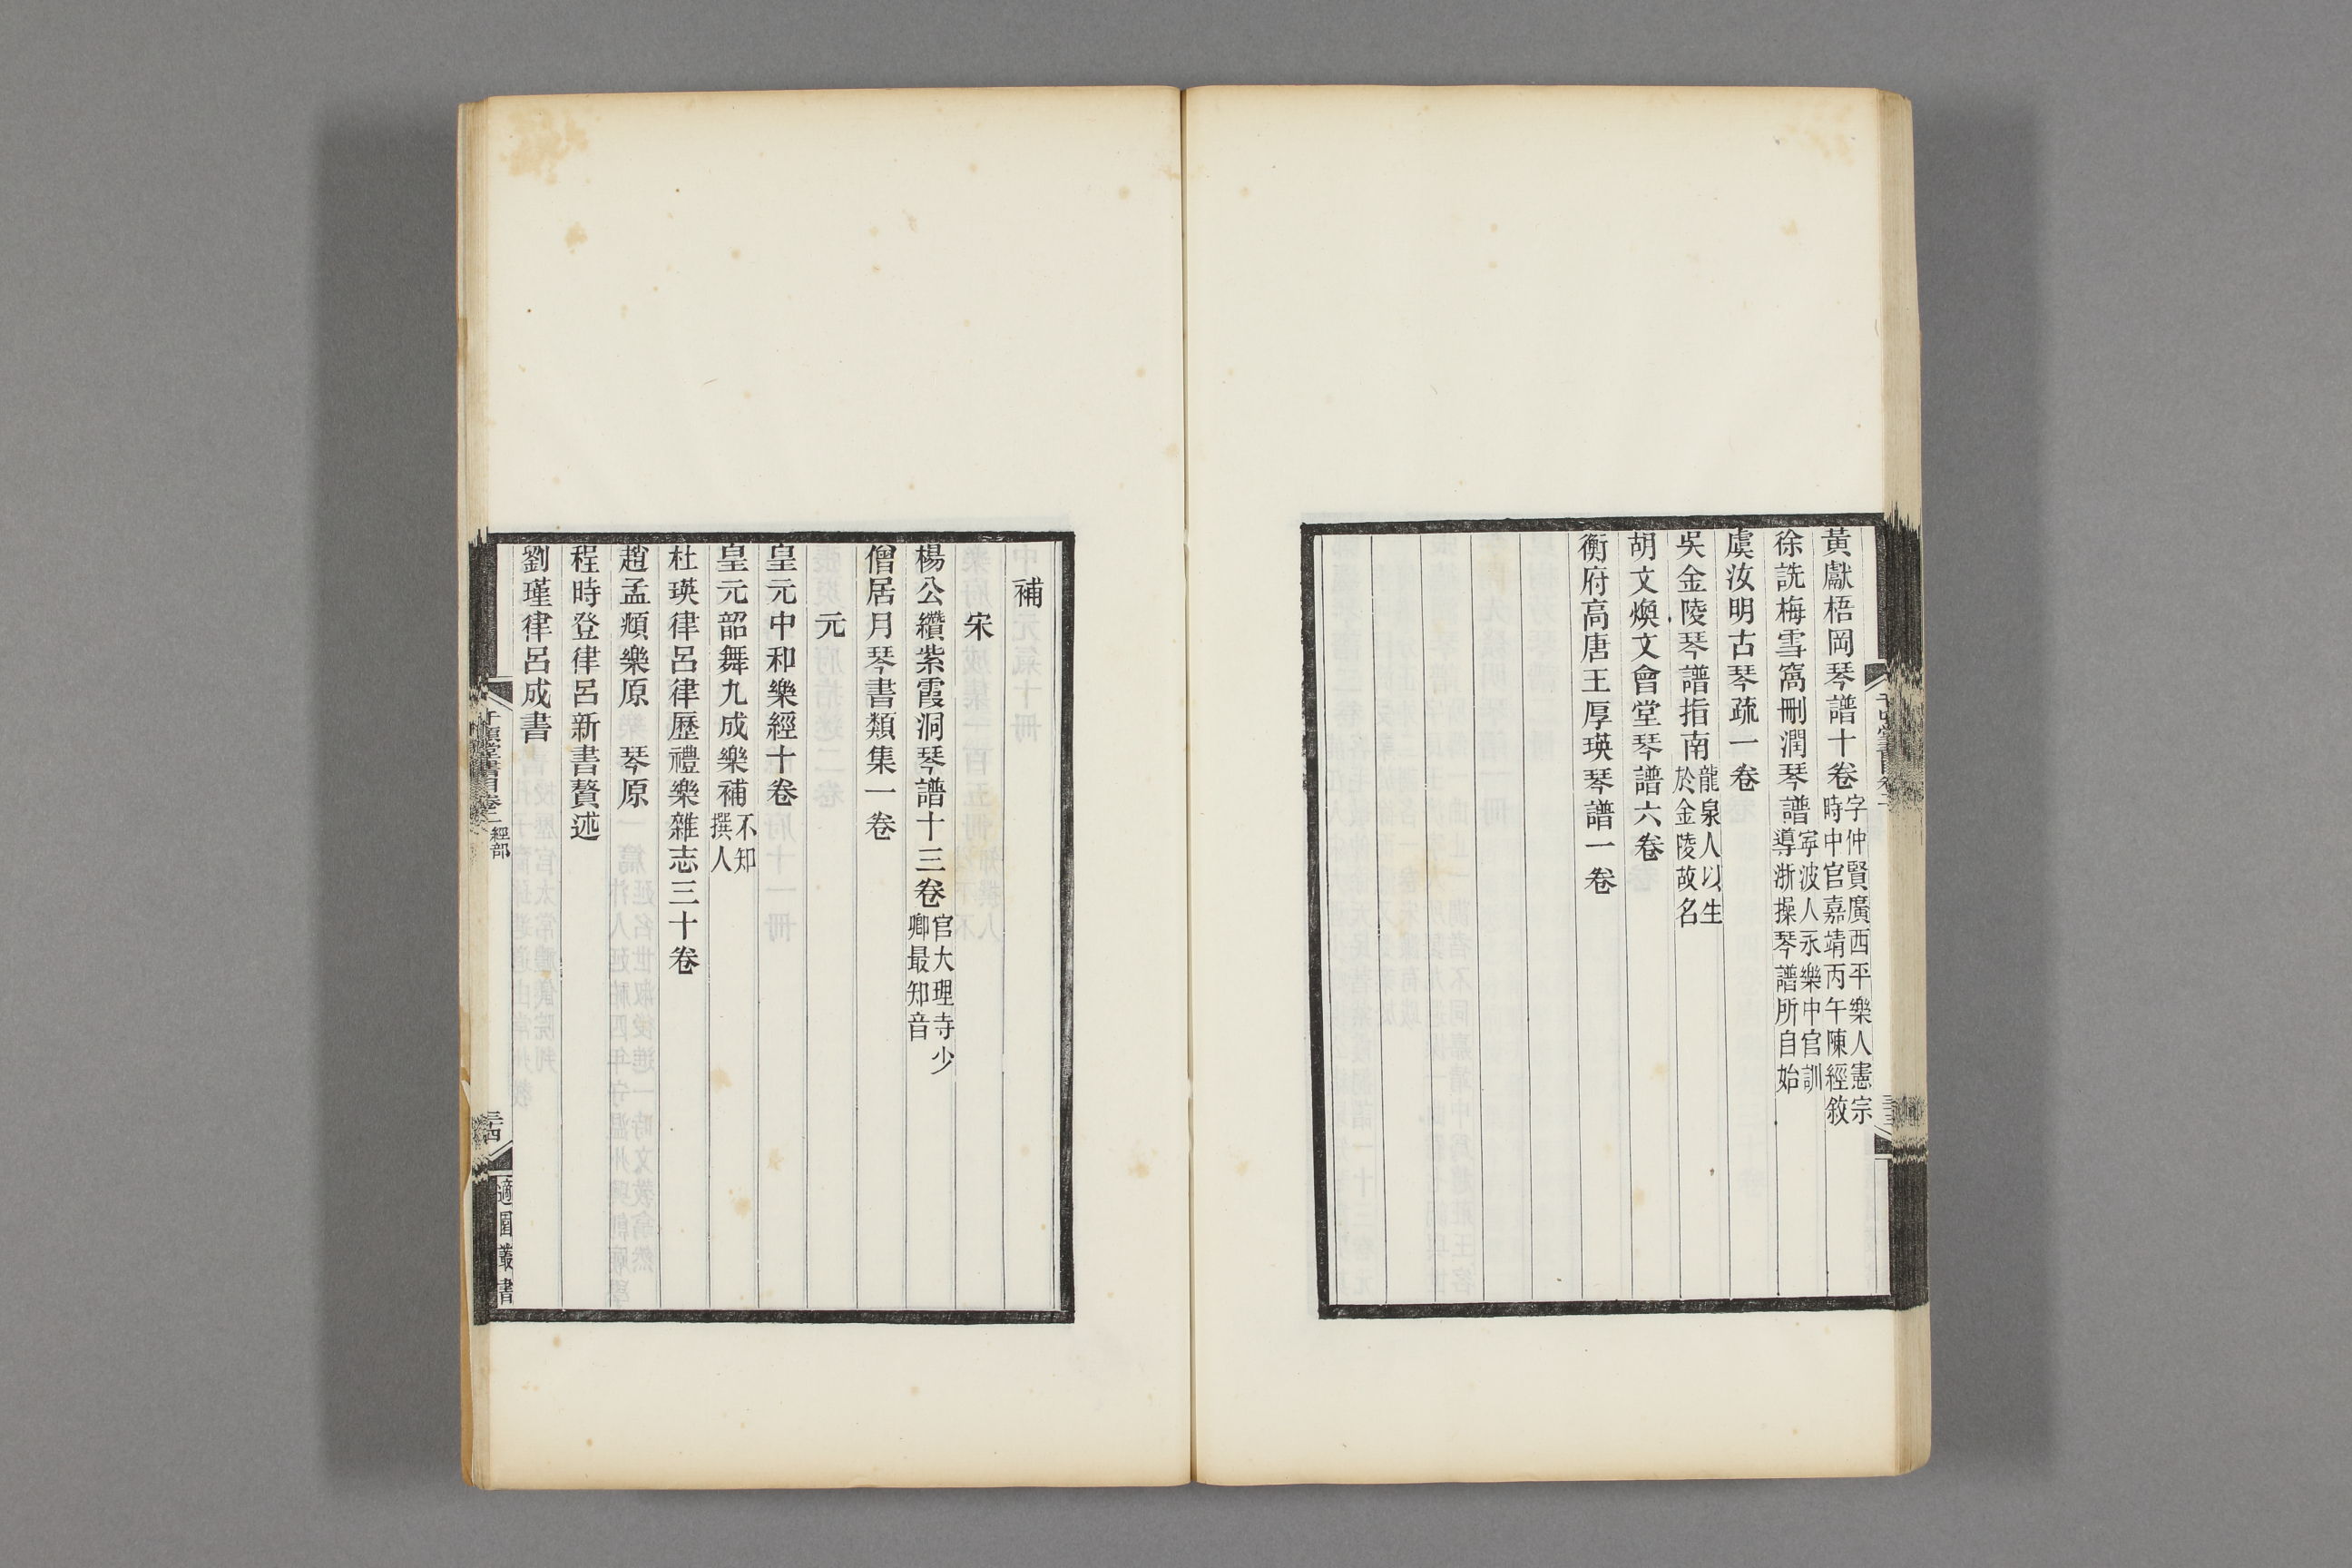 黃獻梧岡琴譜十卷字仲賢廣西平樂人憲宗時中官嘉靖丙午陳經敘
徐詵梅雪窩刪潤琴譜寧波人永樂中官訓導浙操琴譜所自始
虞汝明古琴疏一卷
吳金陵琴譜指南龍泉人以生於金陵故名
胡文煥文會堂琴譜六卷
衡府高唐王厚瑛琴譜一卷
補
宋
楊公纘紫霞洞琴譜十三卷官大理寺少卿最知音
僧居月琴書類集一卷
元
皇元中和樂經十卷
皇元韶舞九成樂補不知撰人
杜瑛律呂律歷禮樂雜志三十卷
趙孟頫樂原 琴原
程時登律呂新書贅述
劉瑾律呂成書
千頃堂書目卷二 經部
三十四
適園叢書